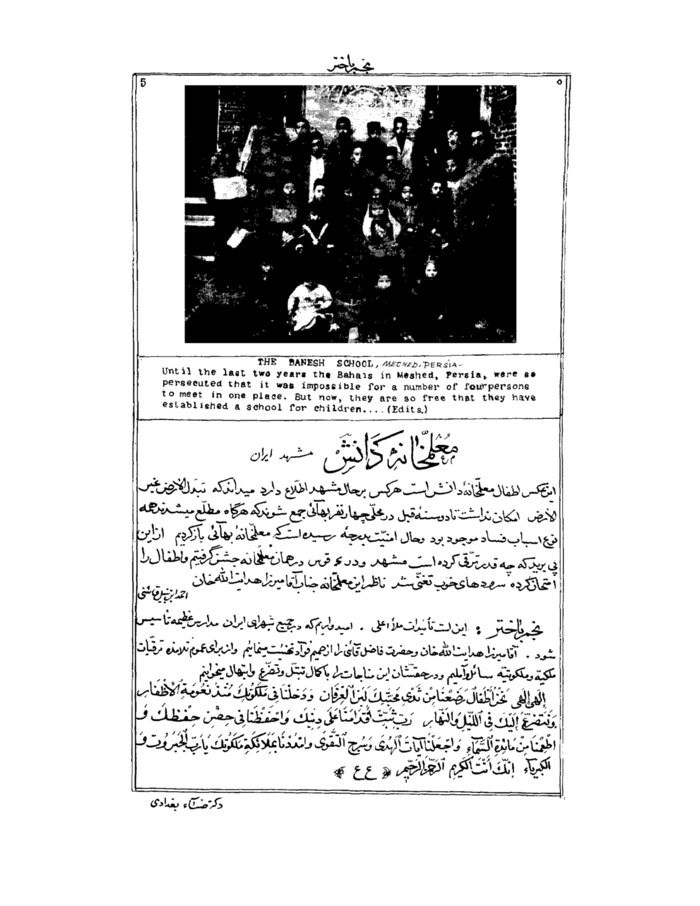 نجم باختر
5
٥
THE DANESH SCHOOL, MECHED. PERSIA-
Until the last two years the Bahais in Meshed, Persia, were so
persecuted that it was impossible for a number of four persons
to meet in one place. But now, they are so free that they have
established a school for children....(Edits.)
معلمخانه دانش مشهد ایران
این عکس اطفال معلمخانه دانش است هرکس بر حال مشهد اطلاع دارد میداند که تبدّل الارض غیر
الارض امکان نداشت تا دو سنه قبل در محلّی چهار نفر بهائی جمع شوند که هرگاه مطلع میشدند همه
نوع اسباب فساد موجود بود وحال امنیت بدرجهٔ رسیده است که معلمخانه بهائی باز کردیم ازاین
پی برید که چه قدر ترقی کرده است مشهد ودر قوس در همان معلمخانه جشن گرفتیم واطفال را
امتحان کرده سرودهای خوب تغنّی شد ناظر این معلمخانه جناب آقا میرزا هدایت الله خان
احمد بن نبیل قائنی
نجم باختر : این است تأییدات ملأ اعلی . امیدواریم که در جمیع شهرهای ایران مدارس عظیمه تأسیس
شود . آقا میرزا هدایت الله خان وحضرت فاضل قائنی را از صمیم فؤاد تهنیت مینمائیم واز برای عموم تلامذه ترقیات
ملکیه وملکوتیه سائل وآملیم ودر حقشان این مناجات را با کمال تبتل وتضرّع وابتهال میخوانیم
الهی الهی نحن اطفال رضعنا من ثدی محبتک لبن العرفان ودخلنا فی ملکوتک منذ نعومة الأظفار
ونتضرّع إلیک فی اللیل والنهار ربّ ثبّت اقدامنا علی دینک واحفظنا فی حصن حفظک و
اطعمنا من مائدة السّماء واجعلنا آیات الهدی وسرج التقوی وامددنا بملائکة ملکوتک یا ربّ الجبروت و
الکبریاء إنّک أنت الکریم الرّحمن الرّحیم ع ع
دکتر ضیاء بغدادی